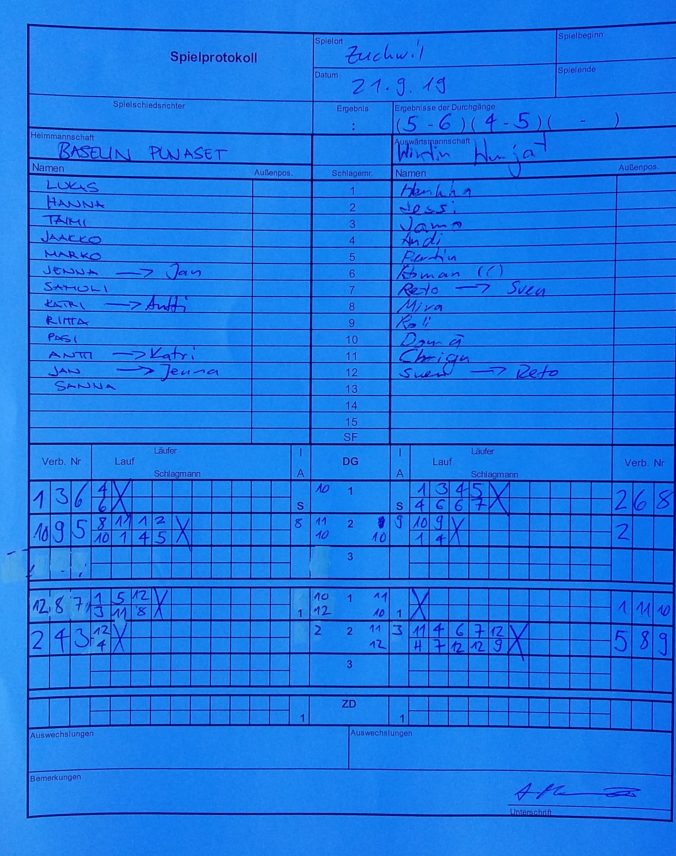 Spielprotokoll
Spielort
Zuchwil
Spielbeginn
Datum
21.9.19
Spielende
Spielschiedsrichter
Ergebnis
:
Ergebnisse der Durchgänge
(5 - 6) (4 - 5) ( - )
Heimmannschaft
BASELIN PUNASET
Auswärtsmannschaft
Namen Außenpos. Schlagmnr. Namen Außenpos.
LUKAS 1
HANNA 2 Jessi
TAIMI 3
JAAKKO 4 Andi
MARKO 5
JENNA → Jan 6
SAMULI 7 Reto → Sven
KATRI → Antti 8 Mira
RIITTA 9 Roli
PASI 10
ANTTI → Katri 11 Chrigu
JAN → Jenna 12 Sven → Reto
SANNA 13
14
15
SF
Verb. Nr Lauf Läufer Schlagmann I A DG I A Lauf Läufer Schlagmann Verb. Nr
1 3 6 4 X S 10 1 S 1 3 4 5 X 2 6 8
6 4 6 6 7
10 9 5 8 11 1 2 X 8 11 2 9 10 9 X 2
10 1 4 5 10 10 1 4
3
12 8 7 1 5 12 X 10 1 11 X 1 11 10
3 11 8 1 12 10 1
2 4 3 12 X 2 2 11 3 11 4 6 7 12 X 5 8 9
4 12 4 7 12 12 9
3
ZD
1 1
Auswechslungen Auswechslungen
Bemerkungen
Unterschrift